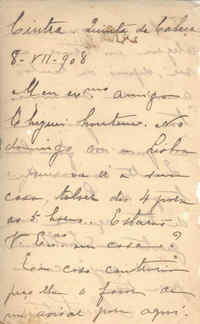 Cintra - Quinta da
8-VII-908
Meu ex.mo amigo
Cheguei hontem. No
domingo vou a Lisboa
e vou a sua
casa, talvez das 4 para
as 5 horas. Estarão
V. Ex.as em casa?
Em caso contrario
peço-lhe o favor de
me avisar para aqui.